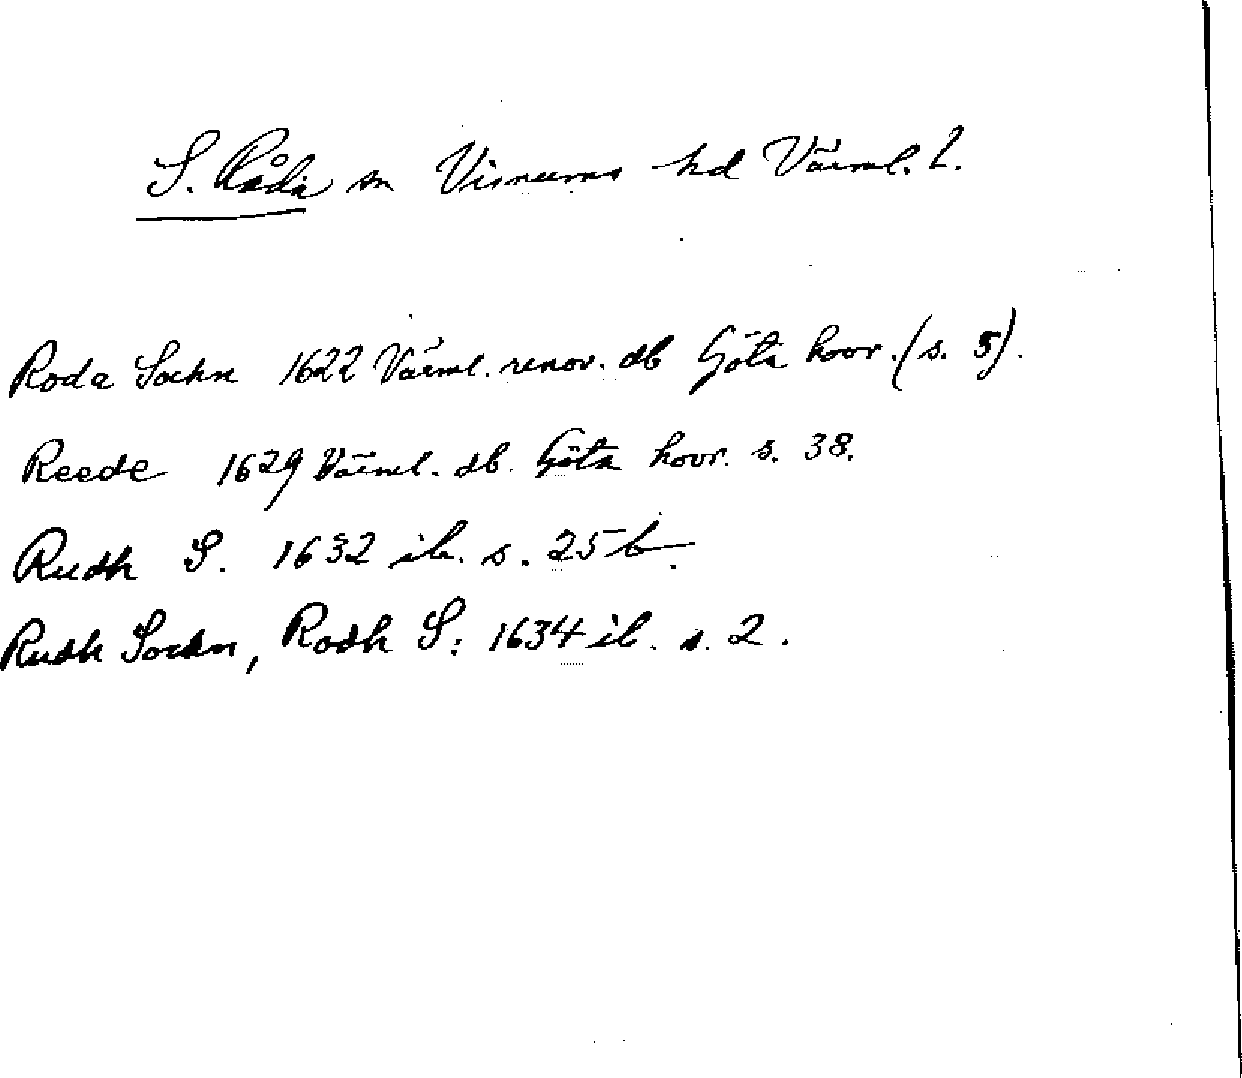 S. Råda sn Visnums hd Värml. l.
Roda Sochn 1622 Värml. renov. db Göta hovr. (s. 5).
Reede 1629 Värml. db. Göta hovr. s. 38.
Rudh S. 1632 ib. s. 25 b.
Rudh Sochn, Rodh S: 1634 ib. s. 2.